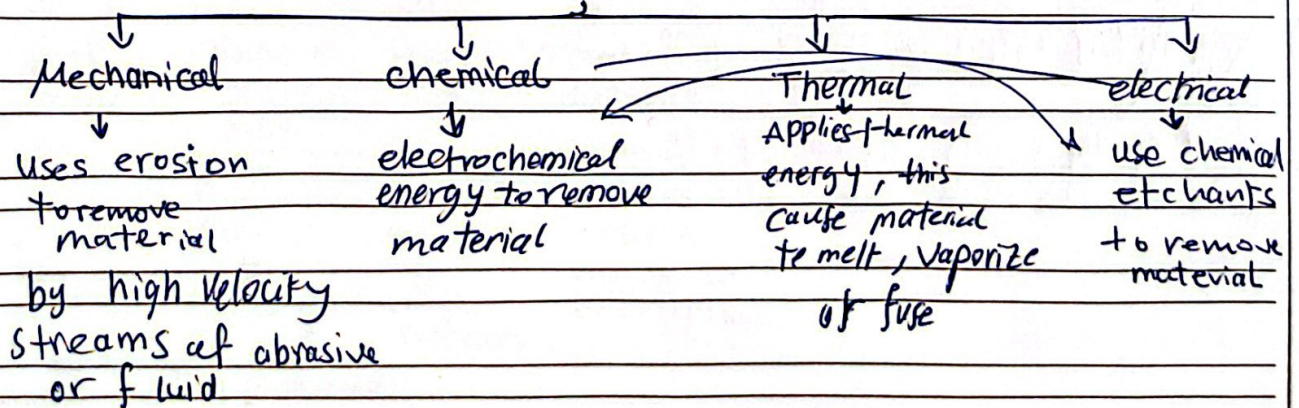 Mechanical
uses erosion
to remove
material
by high velocity
streams of abrasive
or fluid
chemical
electrochemical
energy to remove
material
Thermal
Applies thermal
energy, this
cause material
to melt, vaporize
or fuse
electrical
use chemical
etchants
to remove
material